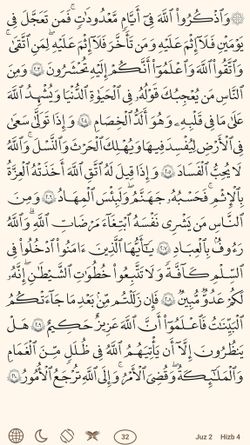 ۞ وَٱذْكُرُوا۟ ٱللَّهَ فِىٓ أَيَّامٍ مَّعْدُودَٰتٍ ۚ فَمَن تَعَجَّلَ فِى
يَوْمَيْنِ فَلَآ إِثْمَ عَلَيْهِ وَمَن تَأَخَّرَ فَلَآ إِثْمَ عَلَيْهِ ۚ لِمَنِ ٱتَّقَىٰ ۗ
وَٱتَّقُوا۟ ٱللَّهَ وَٱعْلَمُوٓا۟ أَنَّكُمْ إِلَيْهِ تُحْشَرُونَ ٢٠٣ وَمِنَ
ٱلنَّاسِ مَن يُعْجِبُكَ قَوْلُهُۥ فِى ٱلْحَيَوٰةِ ٱلدُّنْيَا وَيُشْهِدُ ٱللَّهَ
عَلَىٰ مَا فِى قَلْبِهِۦ وَهُوَ أَلَدُّ ٱلْخِصَامِ ٢٠٤ وَإِذَا تَوَلَّىٰ سَعَىٰ
فِى ٱلْأَرْضِ لِيُفْسِدَ فِيهَا وَيُهْلِكَ ٱلْحَرْثَ وَٱلنَّسْلَ ۗ وَٱللَّهُ
لَا يُحِبُّ ٱلْفَسَادَ ٢٠٥ وَإِذَا قِيلَ لَهُ ٱتَّقِ ٱللَّهَ أَخَذَتْهُ ٱلْعِزَّةُ
بِٱلْإِثْمِ ۚ فَحَسْبُهُۥ جَهَنَّمُ ۚ وَلَبِئْسَ ٱلْمِهَادُ ٢٠٦ وَمِنَ
ٱلنَّاسِ مَن يَشْرِى نَفْسَهُ ٱبْتِغَآءَ مَرْضَاتِ ٱللَّهِ ۗ وَٱللَّهُ
رَءُوفٌۢ بِٱلْعِبَادِ ٢٠٧ يَٰٓأَيُّهَا ٱلَّذِينَ ءَامَنُوا۟ ٱدْخُلُوا۟ فِى
ٱلسِّلْمِ كَآفَّةً وَلَا تَتَّبِعُوا۟ خُطُوَٰتِ ٱلشَّيْطَٰنِ ۚ إِنَّهُۥ
لَكُمْ عَدُوٌّ مُّبِينٌ ٢٠٨ فَإِن زَلَلْتُم مِّنۢ بَعْدِ مَا جَآءَتْكُمُ
ٱلْبَيِّنَٰتُ فَٱعْلَمُوٓا۟ أَنَّ ٱللَّهَ عَزِيزٌ حَكِيمٌ ٢٠٩ هَلْ
يَنظُرُونَ إِلَّآ أَن يَأْتِيَهُمُ ٱللَّهُ فِى ظُلَلٍ مِّنَ ٱلْغَمَامِ
وَٱلْمَلَٰٓئِكَةُ وَقُضِىَ ٱلْأَمْرُ ۚ وَإِلَى ٱللَّهِ تُرْجَعُ ٱلْأُمُورُ ٢١٠
32 Juz 2 Hizb 4